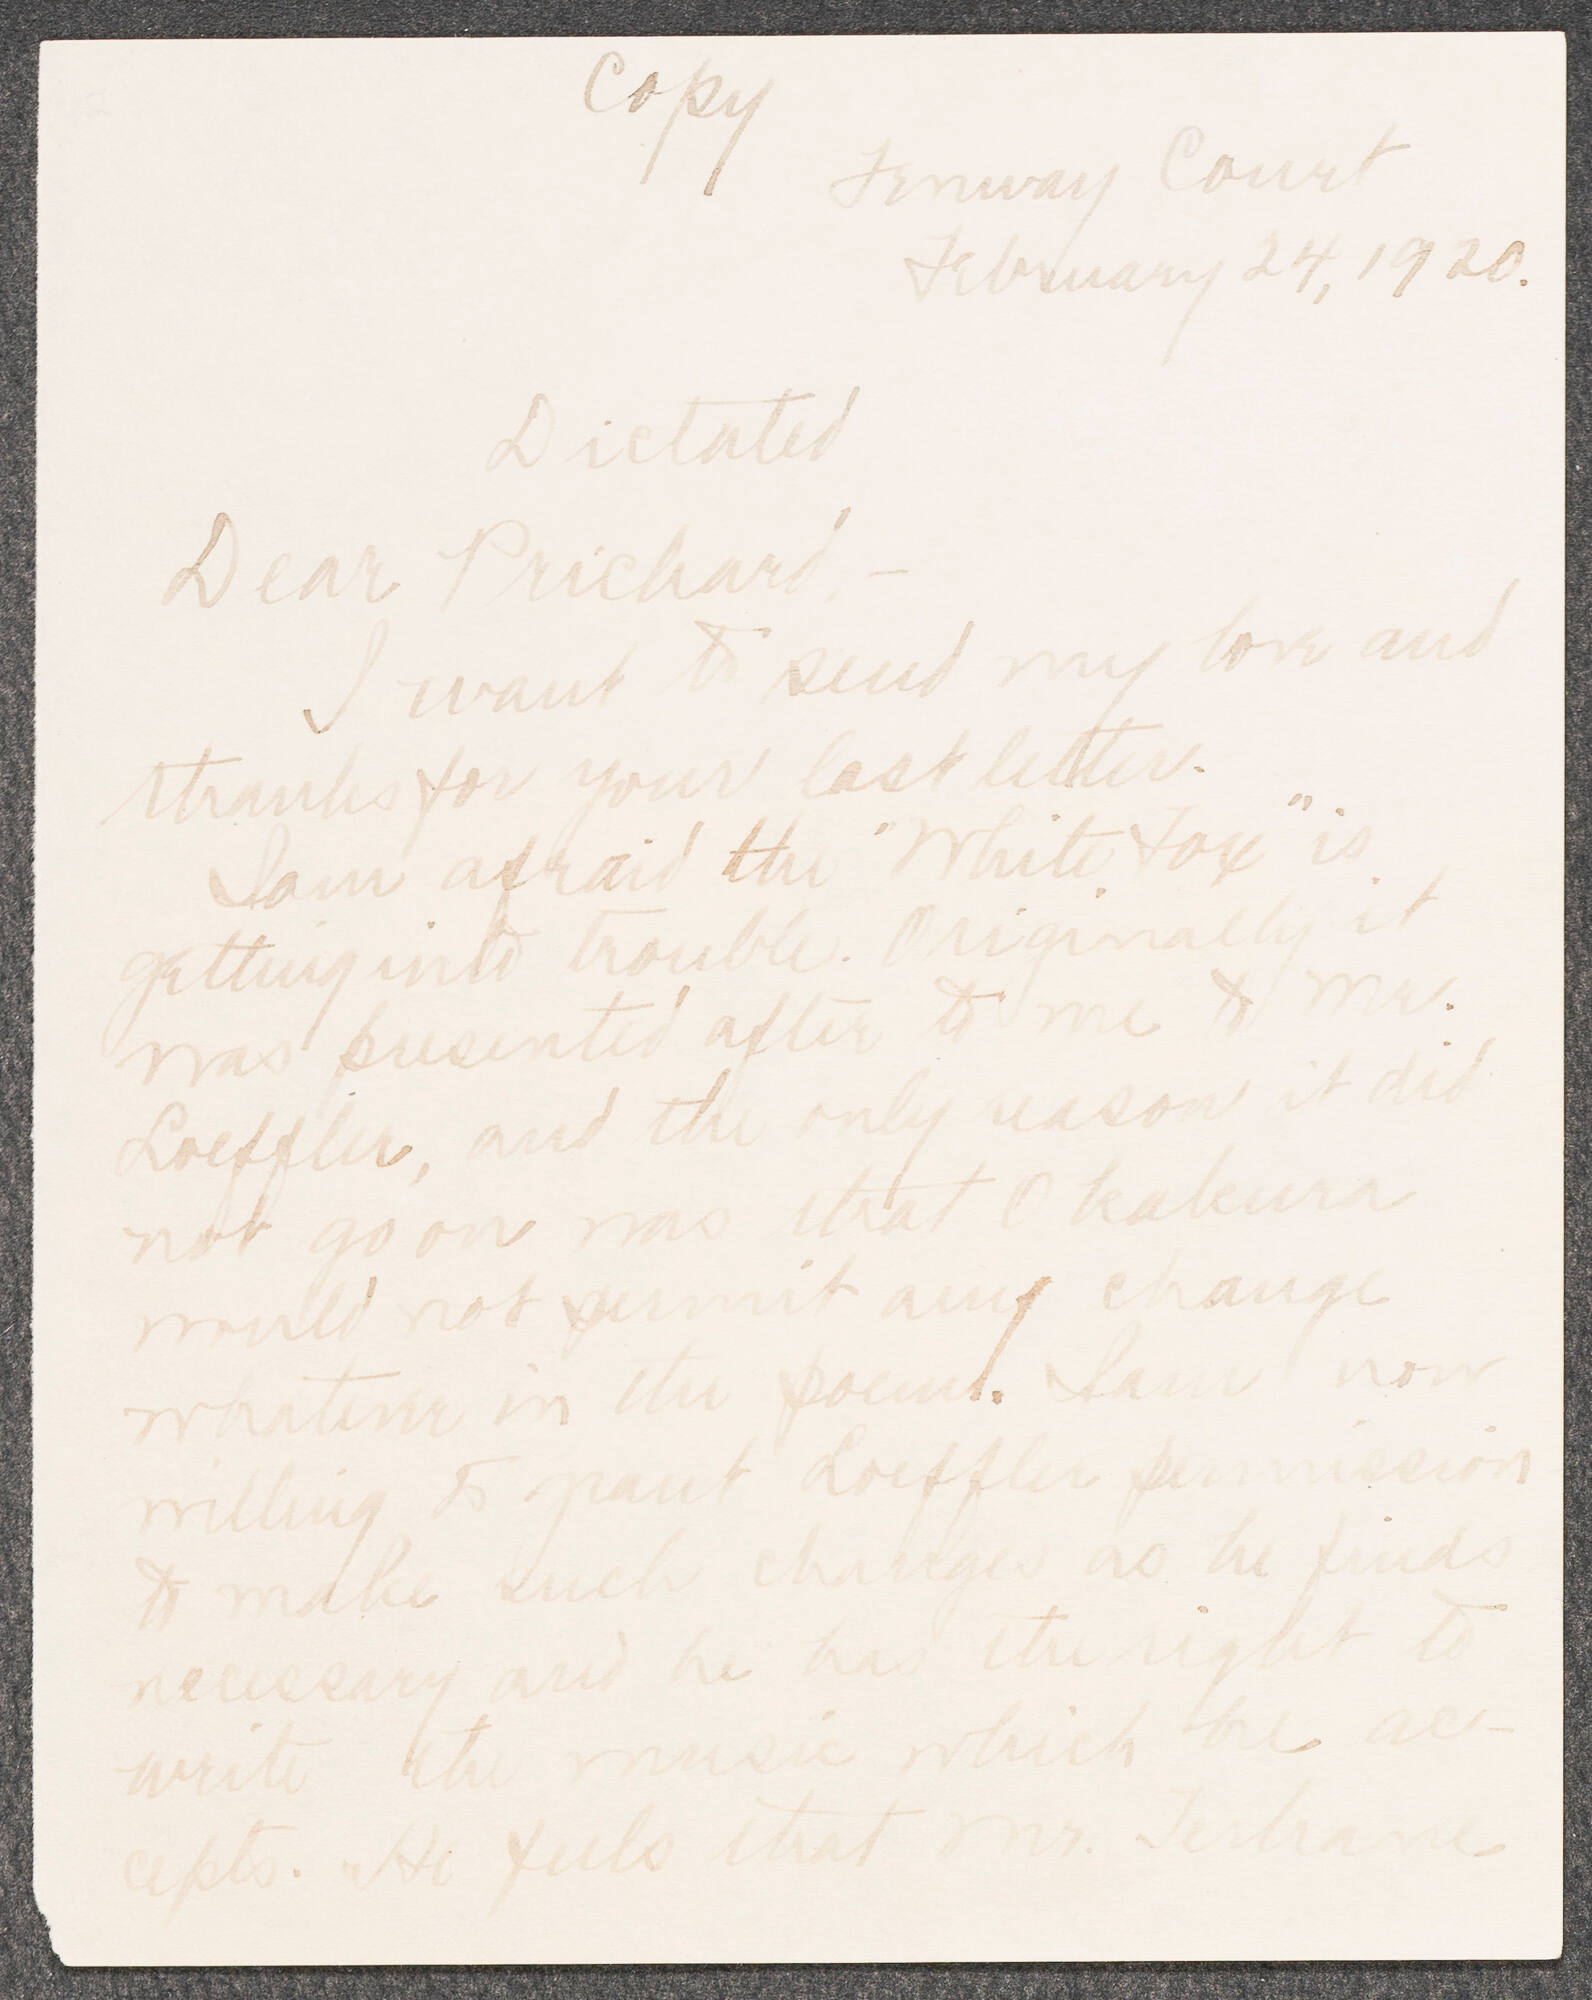 Copy
Fenway Court
February 24, 1920.
Dictated
Dear Prichard, –
I want to send my love and
thanks for your last letter.
I am afraid the "White Fox" is
getting into trouble. Originally it
was presented after to me to Mr.
Loeffler, and the only reason it did
not go on was that Okakura
would not permit any change
whatever in the poem. I am now
willing to grant Loeffler permission
to make such changes as he finds
necessary and he has the right to
write the music which he ac-
cepts. He feels that Mr.